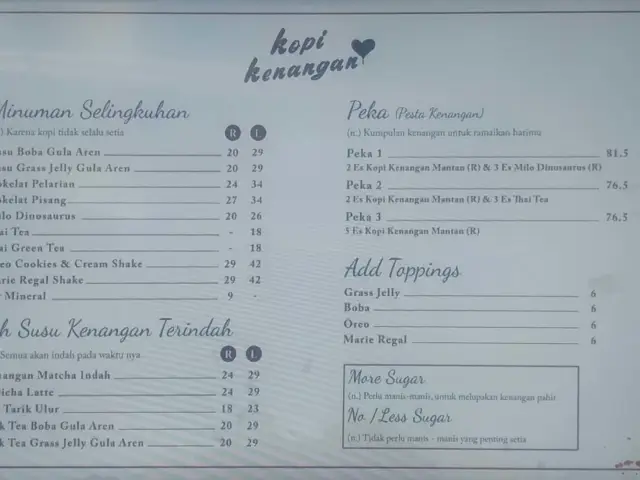 kopi
kenangan
Minuman Selingkuhan
) Karena kopi tidak selalu setia R L
su Boba Gula Aren 20 29
su Grass Jelly Gula Aren 20 29
okelat Pelarian 24 34
okelat Pisang 27 34
ilo Dinosaurus 20 26
ai Tea - 18
ai Green Tea - 18
eo Cookies & Cream Shake 29 42
arie Regal Shake 29 42
r Mineral 9 -
h Susu Kenangan Terindah
Semua akan indah pada waktu nya R L
nangan Matcha Indah 24 29
icha Latte 24 29
Tarik Ulur 18 23
k Tea Boba Gula Aren 20 29
k Tea Grass Jelly Gula Aren 20 29
Peka (Pesta Kenangan)
(n.) Kumpulan kenangan untuk ramaikan harimu
Peka 1 81.5
2 Es Kopi Kenangan Mantan (R) & 3 Es Milo Dinosaurus (R)
Peka 2 76.5
2 Es Kopi Kenangan Mantan (R) & 3 Es Thai Tea
Peka 3 76.5
5 Es Kopi Kenangan Mantan (R)
Add Toppings
Grass Jelly 6
Boba 6
Oreo 6
Marie Regal 6
More Sugar
(n.) Perlu manis-manis, untuk melupakan kenangan pahit
No / Less Sugar
(n.) Tidak perlu manis - manis yang penting setia